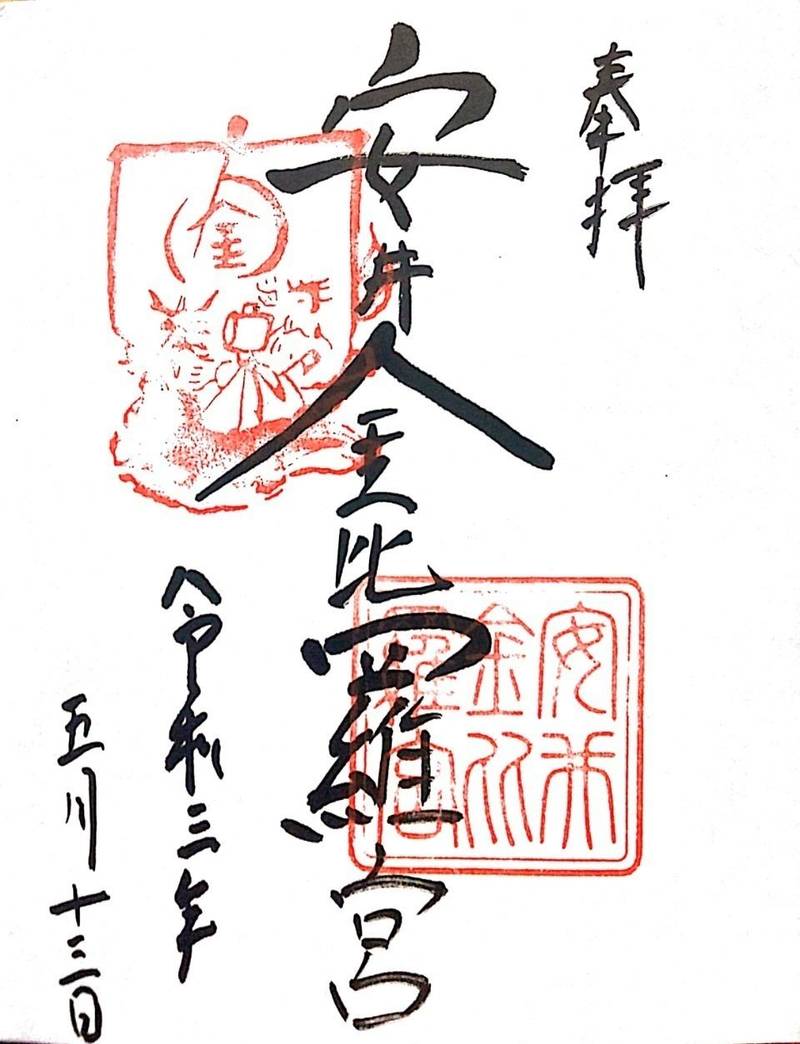 奉拝
安井金比羅宮
安井
金比
羅宮
金
令和三年
五月十三日